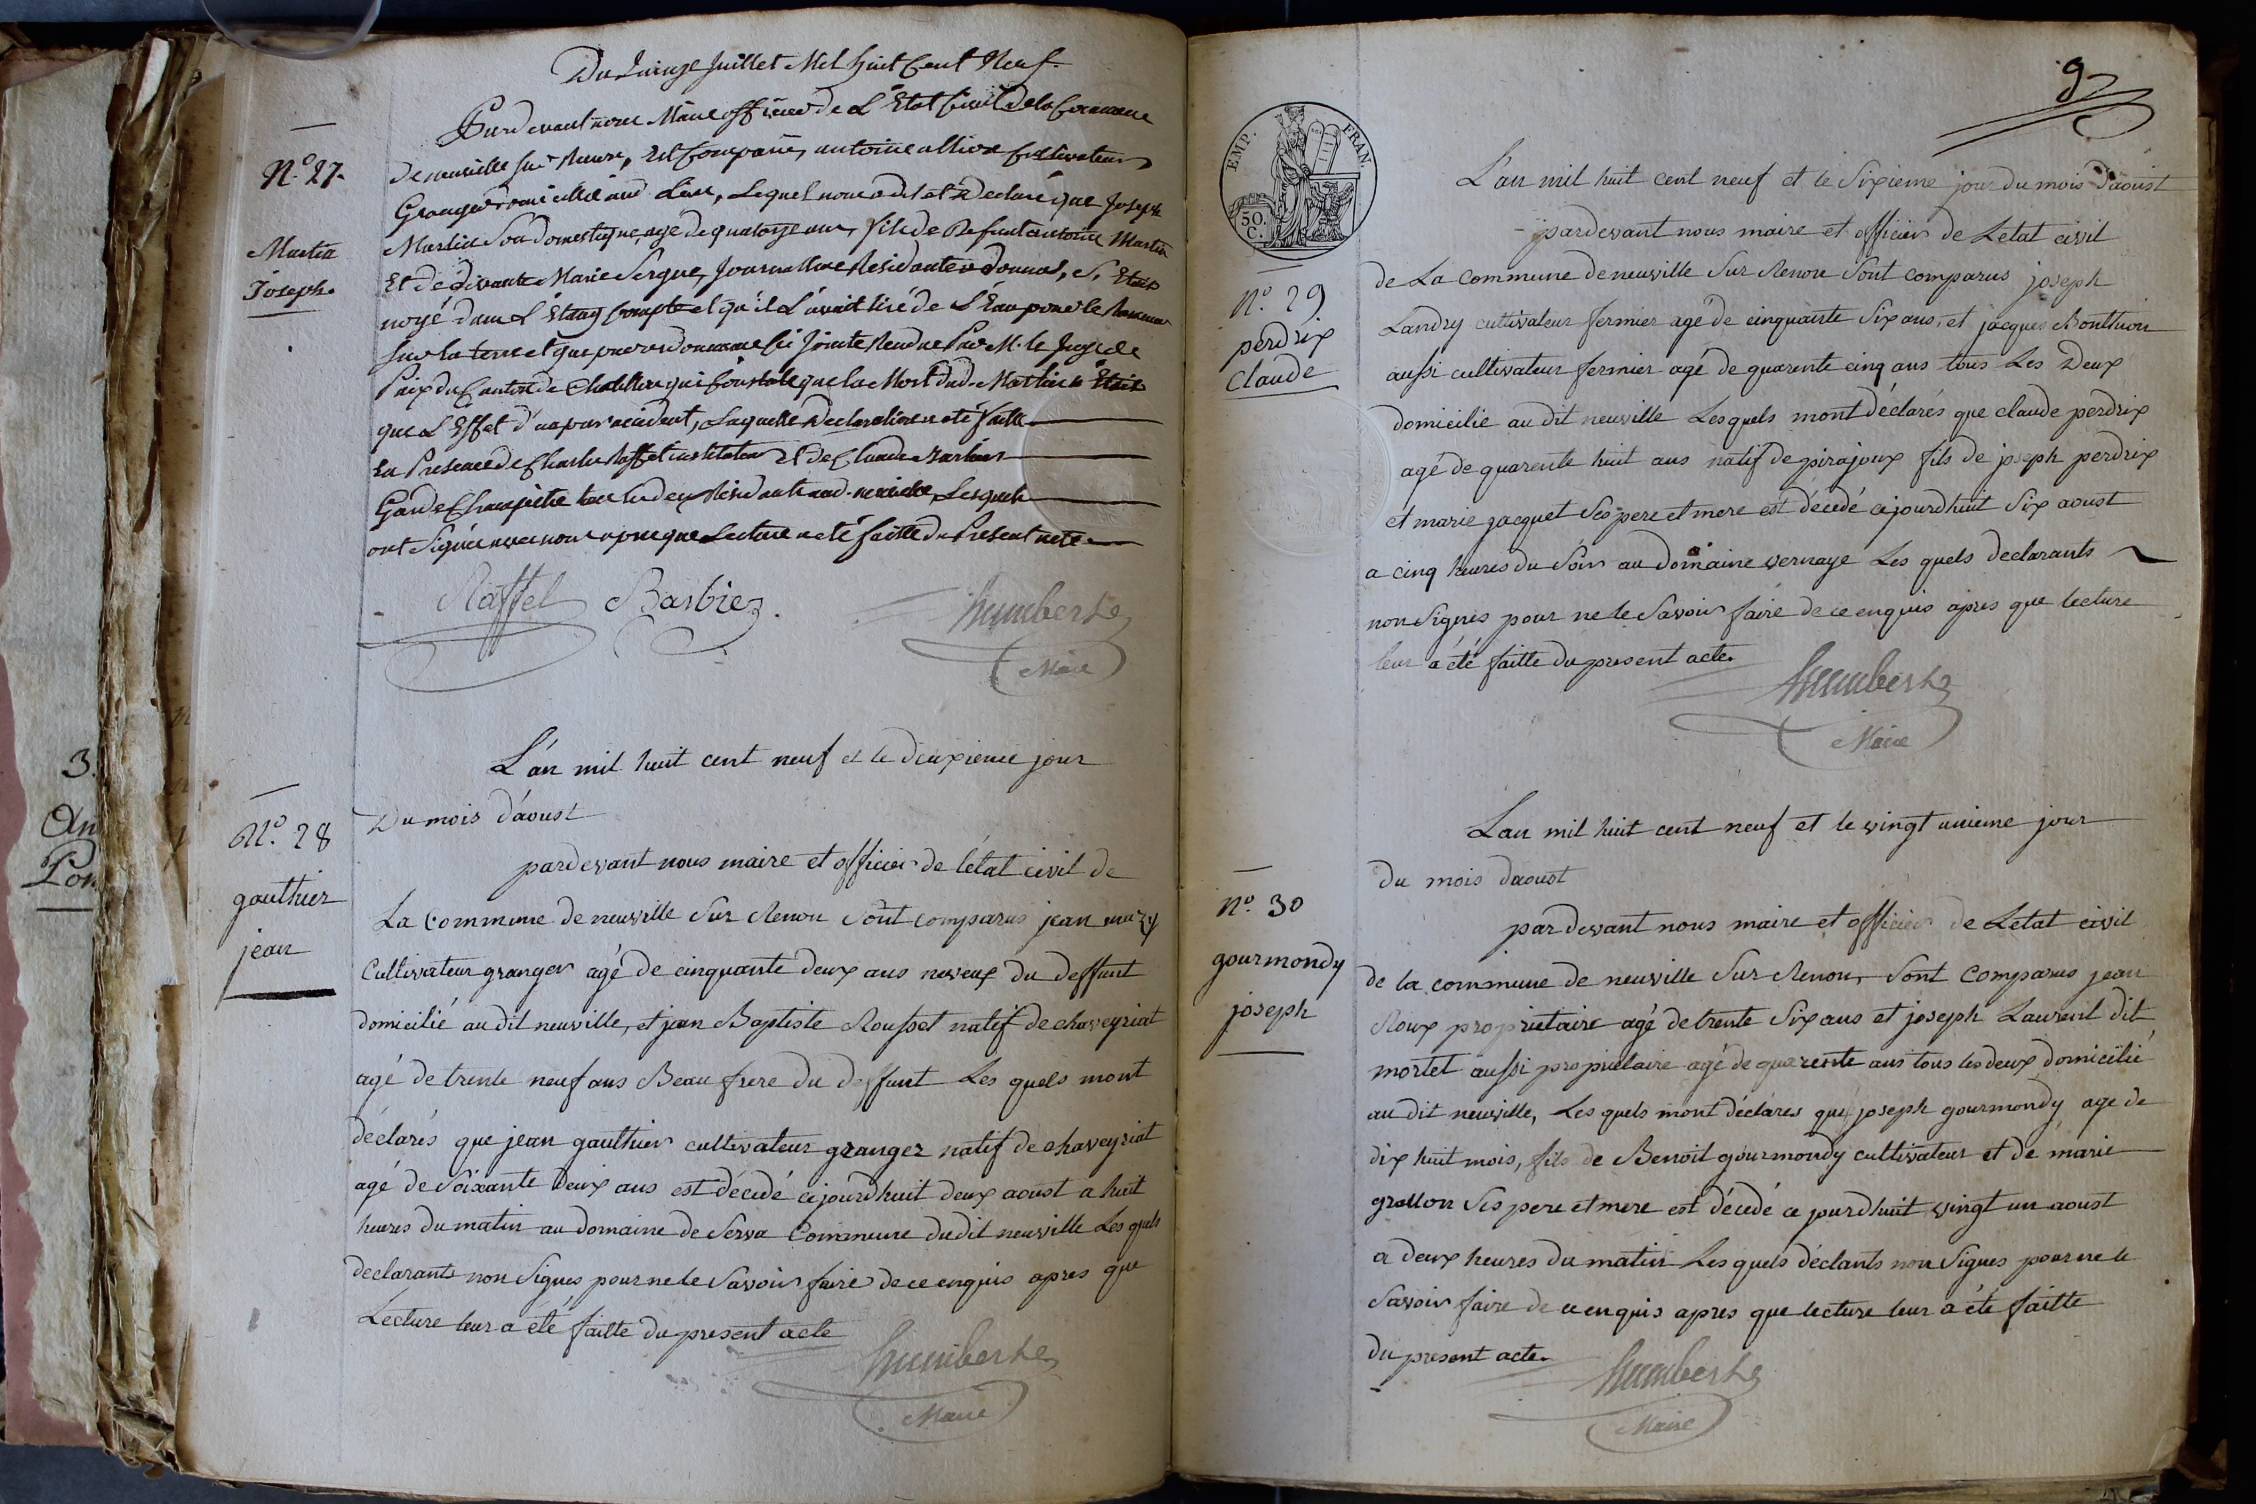 Du quinze juillet Mil huit Cent Neuf.
Pardevant nous Maire officier de L'Etat Civil de la Commune
N.º 27.
de neuville sur Renon, Est Comparu, antoine cultivateur
Granger domicilié aud. Lieu, Lequel nous a dit et Declaré que Joseph
Martin
Joseph.
Martin Son domestique, agé de quatorze ans, fils de Defunt antoine Martin
Et de vivante Marie Sergue, Journalliere Residante a s. Etait
noyé dans L'Etang et qu'il L'avait tiré de L'Eau pour le
sur la terre et que par ordonnance ci Jointe Rendue Par M. le Juge de
Paix du Canton de Chatillon qui Constate que la Mort dud. Martin n'Etait
que L'Effet d'un pur accident, Laquelle Declaration a eté faitte
En Presence de Charles Raffet instituteur Et de Claude Barbier
Garde Champetre tous les deux Residants aud. neuville, Lesquels
ont Signés avec nous apres que Lecture a eté faitte du Present acte
Raffet Barbier humbert
Maire
L'an mil huit cent neuf et le deuxieme jour
Du mois d'aoust
N.º 28
gauthier
jean
pardevant nous maire et officier de l'état civil de
La commune de neuville Sur Renon Sont comparus jean
Cultivateur granger agé de cinquante deux ans neveux du deffunt
domicilié au dit neuville, et jean Baptiste Rousset natif de chaveyriat
agé de trente neuf ans Beau frere du deffunt Les quels mont
déclarés que jean gauthier cultivateur granger natif de chaveyriat
agé de Soixante deux ans est décédé cejourdhuit deux aoust a huit
heures du matin au domaine de Serva Commune dudit neuville Les quels
declarants non Signes pour ne le Savoir faire de ce enquis apres que
Lecture leur a été faitte du present acte
humbert
Maire
9
EMP. FRAN.
50.
C.
L'an mil huit cent neuf et le Sixieme jour du mois d'aoust
pardevant nous maire et officier de Letat civil
de La commune de neuville Sur Renon Sont comparus joseph
N.º 29
perdrix
Claude
Landry cultivateur fermier agé de cinquante Six ans, et jacques Monthion
aussi cultivateur fermier agé de quarente cinq ans tous Les Deux
domicilie au dit neuville Lesquels mont déclarés que claude perdrix
agé de quarente huit ans natif de pirajoux fils de joseph perdrix
et marie jacquet Ses pere et mere est décedé cejourdhuit Six aoust
a cinq heures du Soir au domaine vernaye Les quels declarants
non Signés pour ne le Savoir faire de ce enquis apres que lecture
leur a été faitte du present acte.
humbert
Maire
Lan mil huit cent neuf et le vingt unieme jour
du mois daoust
N.º 30
gourmondy
joseph
pardevant nous maire et officier de Letat civil
de la commune de neuville Sur Renon, Sont Comparus jean
Roux proprietaire agé de trente Six ans et joseph Laurent dit
mortet aussi proprietaire agé de quarente ans tous les deux domicilié
au dit neuville, Les quels mont déclares que joseph gourmondy age de
dix huit mois, fils de Benoit gourmondy cultivateur et de marie
grollon Ses pere et mere est décedé ce jourdhuit vingt un aoust
a deux heures du matin Les quels déclants non Signes pour ne le
Savoir faire de ce enquis apres que lecture leur a été faitte
du present acte.
humbert
Maire